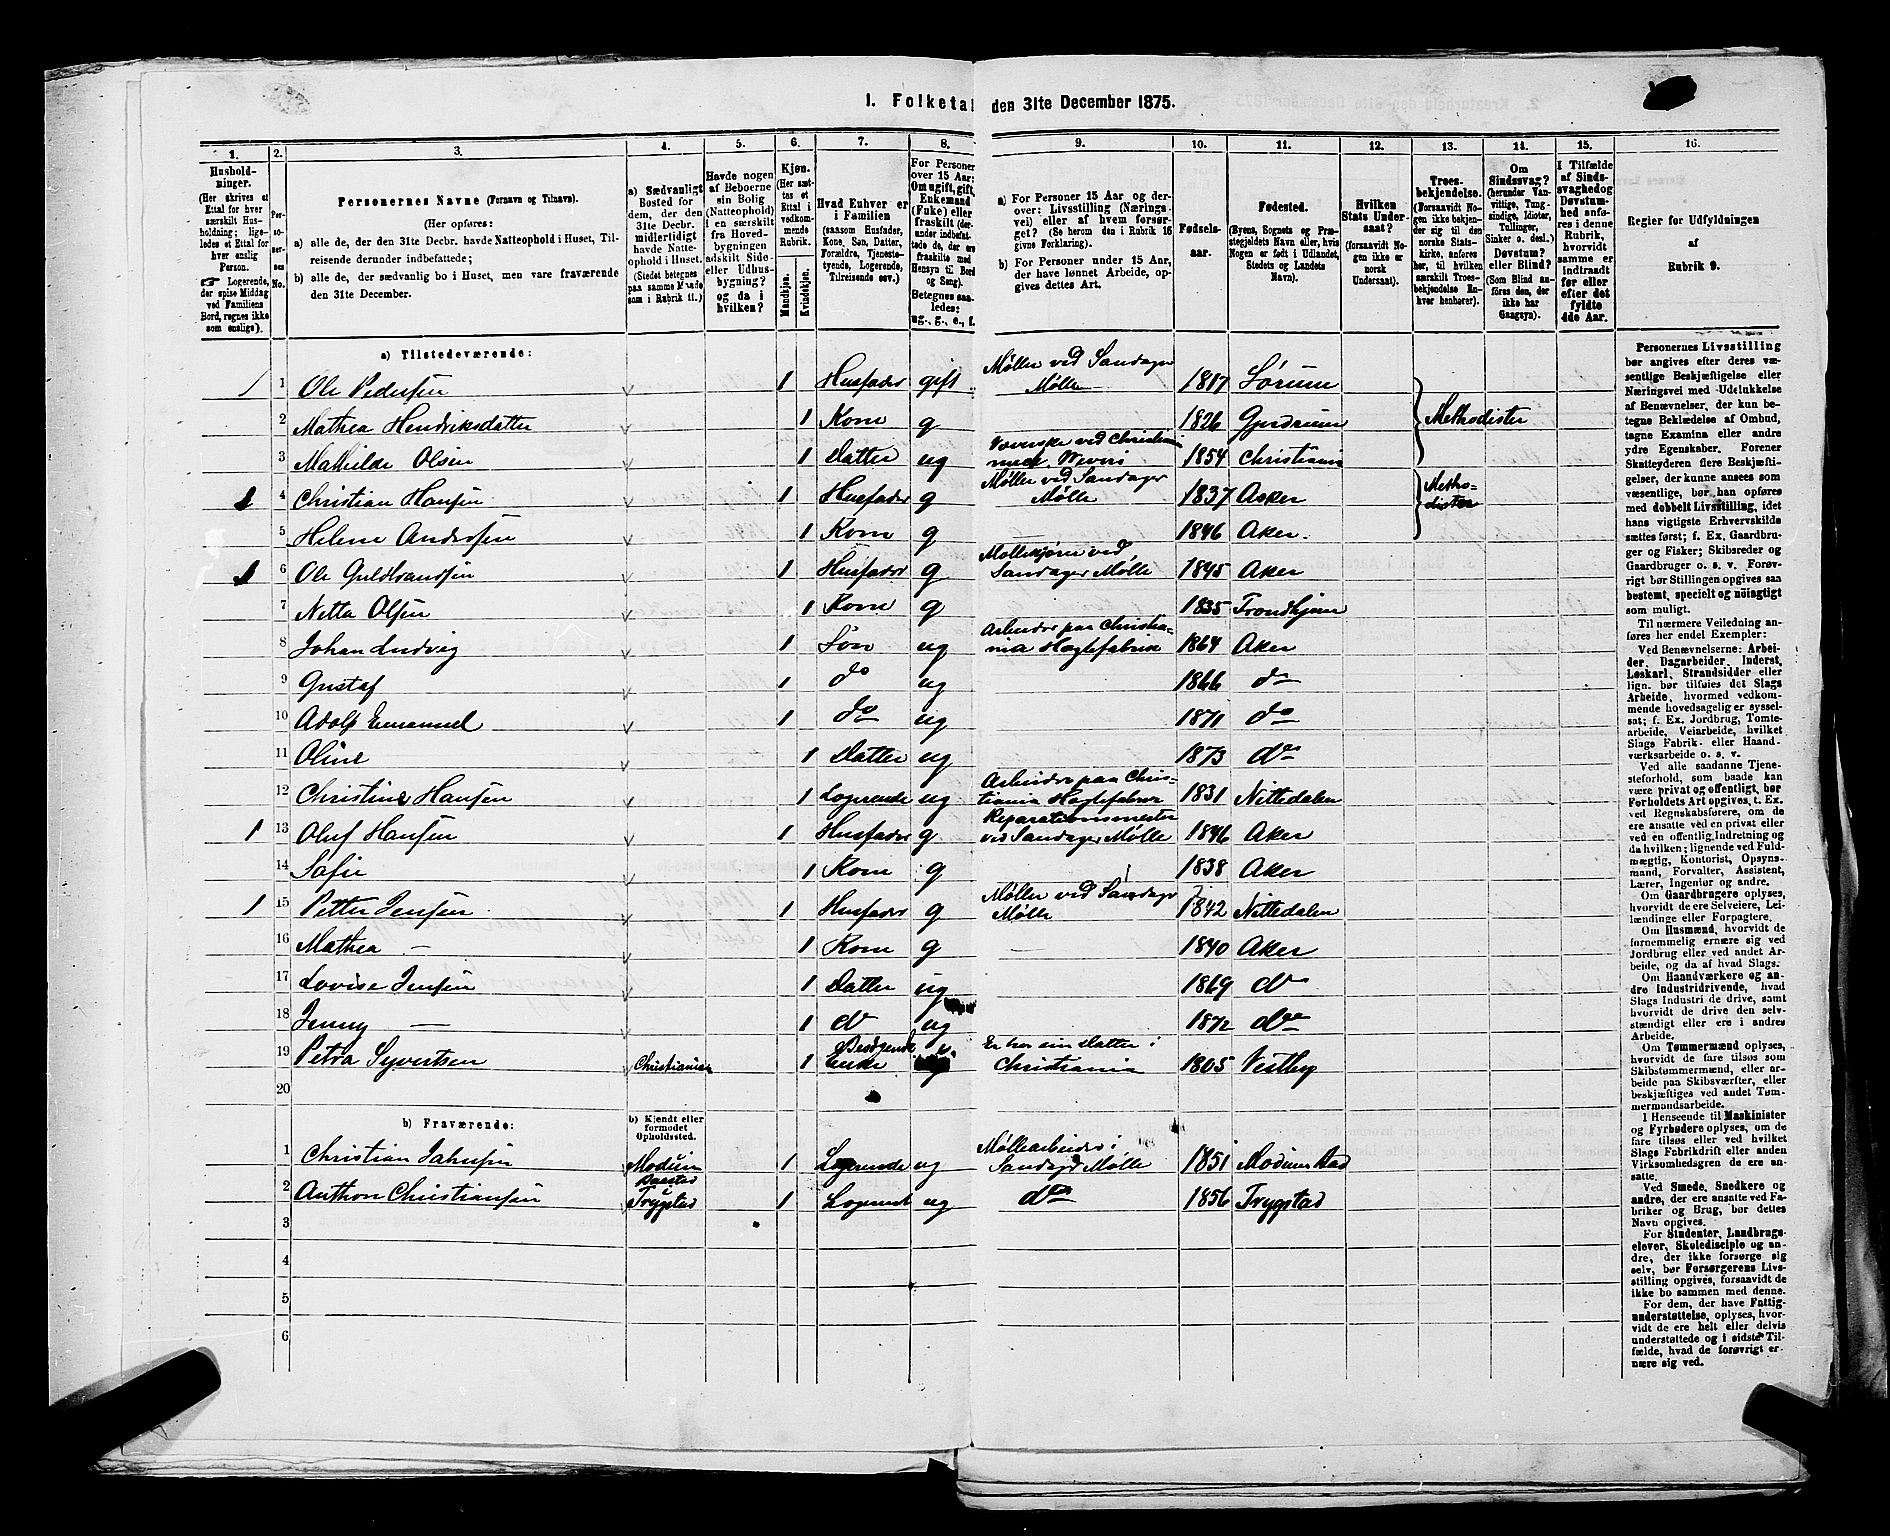 I. Folketal den 31te December 1875.
1. 2. 3. 4. 5. 6. 7. 8. 9. 10. 11. 12. 13. 14. 15. 16.
Husholdninger.
(Her skrives et Ettal for hver særskilt Husholdning; ligeledes et Ettal for hver enslig Person.
Logerende, der spise Middag ved Familiens Bord, regnes ikke som enslige).
Personernes No.
Personernes Navne (Fornavn og Tilnavn).
(Her opføres:
a) alle de, der den 31te Decbr. havde Natteophold i Huset, Tilreisende derunder indbefattede;
b) alle de, der sædvanlig bo i Huset, men vare fraværende den 31te December.
a) Sædvanligt Bosted for dem, der den 31te Decbr. midlertidigt havde Natteophold i Huset. (Stedet betegnes paa samme Maade som i Rubrik 11.)
Havde nogen af Beboerne sin Bolig (Natteophold) i en særskilt fra Hovedbygningen adskilt Side- eller Udhusbygning? og da i hvilken?
Kjøn. (Her sættes et Ettal i vedkommende Rubrik.
Mandkjøn. Kvindekjøn.
Hvad Enhver er i Familien (saasom Husfader, Kone, Søn, Datter, Forældre, Tjenestetyende, Logerende, Tilreisende osv.)
For Personer over 15 Aar: Om ugift, gift, Enkemand (Enke) eller fraskilt (derunder indbefattede de, der ere fraskilte med Hensyn til Bord og Seng).
Betegnes saaledes: ug., g., e., f.
a) For Personer 15 Aar og derover: Livsstilling (Næringsvei) eller af hvem forsørget? (Se herom den i Rubrik 16 givne Forklaring).
b) For Personer under 15 Aar, der have lønnet Arbeide, opgives dettes Art.
Fødselsaar.
Fødested.
(Byens, Sognets og Præstegjeldets Navn eller, hvis Nogen er født i Udlandet, Stedets og Landets Navn).
Hvilken Stats Undersaat?
(forsaavidt Nogen ikke er norsk Undersaat).
Troesbekjendelse.
(Forsaavidt Nogen ikke bekjender sig til den norske Statskirke, anføres her, til hvilken særskilt Troesbekjendelse Enhver henhører).
Om Sindssvag? (herunder Vanvittige, Tungsindige, Idioter, Tullinger, Sinker o. desl.) Døvstum? eller Blind?
(Som Blind anføres den, der ikke har Gangsyn).
I Tilfælde af Sindssvaghed og Døvstumhed anføres i denne Rubrik, hvorvidt samme er indtraadt før eller efter det fyldte 4de Aar.
Regler for Udfyldningen af Rubrik 9.
a) Tilstedeværende:
1 1 Ole Pedersen 1 Husfader gift Møller ved Sandager Mølle 1817 Sørum
2 Mathea Hendriksdatter 1 Kone g 1826 Gjerdrum Methodister
3 Mathilde Olsen 1 Datter ug Væverske ved Christiania mek. Væveri 1854 Christiania
1 4 Christian Hansen 1 Husfader g Møller ved Sandager Mølle 1837 Asker Methodister
5 Helene Andersen 1 Kone g 1846 Aker.
1 6 Ole Guldbrandsen 1 Husfader g Møllekjører ved Sandager Mølle 1845 Aker
7 Netta Olsen 1 Kone g 1835 Trondhjem
8 Johan Ludvig 1 Søn ug Arbeider paa Christiania Høglefabrik 1864 Aker
9 Gustaf 1 do ug 1866 do
10 Adolf Emanuel 1 do ug 1871 do
11 Oline 1 Datter ug 1873 do
12 Christine Hansen 1 Logerende ug Arbeider paa Christiania Høglefabrik 1831 Nittedalen
1 13 Oluf Hansen 1 Husfader g Reparationsmester ved Sandager Mølle 1846 Aker
14 Sofie 1 Kone g 1838 Aker
1 15 Petter Jensen 1 Husfader g Møller ved Sandager Mølle 1842 Nittedalen
16 Mathea — 1 Kone g 1840 Aker
17 Lovise Jensen 1 Datter ug 1869 do
18 Jenny — 1 do ug 1872 do
19 Petra Syvertsen Christiania 1 Besøgende Enke Er hos sin Datter i Christiania 1805 Vestby
20
b) Fraværende: b) Kjendt eller formodet Opholdssted.
1 Christian Jahnsen Modum 1 Logerende ug Møllearbeider i Sandager Mølle 1851 Modum
2 Anthon Christiansen Trygstad 1 Logerende ug do 1856 Trygstad
3
4
5
6
Personernes Livsstilling bør angives efter deres væsentlige Beskjæftigelse eller Næringsvei med Udelukkelse af Benævnelser, der kun betegne Beklædelse af Ombud, tagne Examina eller andre ydre Egenskaber. Forener Skatteyderen flere Beskjæftigelser, der kunne ansees som væsentlige, bør han opføres med dobbelt Livsstilling, idet hans vigtigste Erhvervskilde sættes først; f. Ex. Gaardbruger og Fisker; Skibsreder og Gaardbruger o. s. v. Forøvrigt bør Stillingen opgives saa bestemt, specielt og nøiagtigt som muligt.
Til nærmere Veiledning anføres her endel Exempler:
Ved Benævnelserne: Arbeider, Dagarbeider, Inderst, Løskarl, Strandsidder eller lign. bør tilføies det Slags Arbeide, hvormed vedkommende hovedsagelig er sysselsat; f. Ex. Jordbrug, Tomtearbeide, Veiarbeide, hvilket Slags Fabrik- eller Haandværksarbeide o. s. v.
Ved alle saadanne Tjenesteforhold, som baade kan være privat og offentligt, bør Forholdets Art opgives, t. Ex. ved Regnskabsførere, om de ere ansatte ved en privat eller ved en offentlig Indretning og da hvilken; lignende ved Fuldmægtig, Kontorist, Opsynsmand, Forvalter, Assistent, Lærer, Ingeniør og andre.
Om Gaardbrugere oplyses, hvorvidt de ere Selveiere, Leilændinge eller Forpagtere.
Om Husmænd, hvorvidt de fornemmelig ernære sig ved Jordbrug eller ved andet Arbeide, og da af hvad Slags.
Om Haandværkere og andre Industridrivende, hvad Slags Industri de drive, samt hvorvidt de drive den selvstændigt eller ere i andres Arbeide.
Om Tømmermænd oplyses, hvorvidt de fare tilsøs som Skibstømmermænd, eller arbeide paa Skibsværfter, eller beskjæftiges ved andet Tømmermandsarbeide.
I Henseende til Maskinister og Fyrbødere oplyses, om de fare tilsøs eller ved hvilket Slags Fabrikdrift eller anden Virksomhedsgren de ere ansatte.
Ved Smede, Snedkere og andre, der ere ansatte ved Fabriker og Brug, bør dettes Navn opgives.
For Studenter, Landbrugselever, Skoledisciple og andre, der ikke forsørge sig selv, bør Forsørgerens Livsstilling opgives, forsaavidt de ikke bo sammen med denne.
For dem, der have Fattigunderstøttelse, oplyses, hvorvidt de ere helt eller delvis understøttede og i sidste Tilfælde, hvad de forøvrigt ernære sig ved.